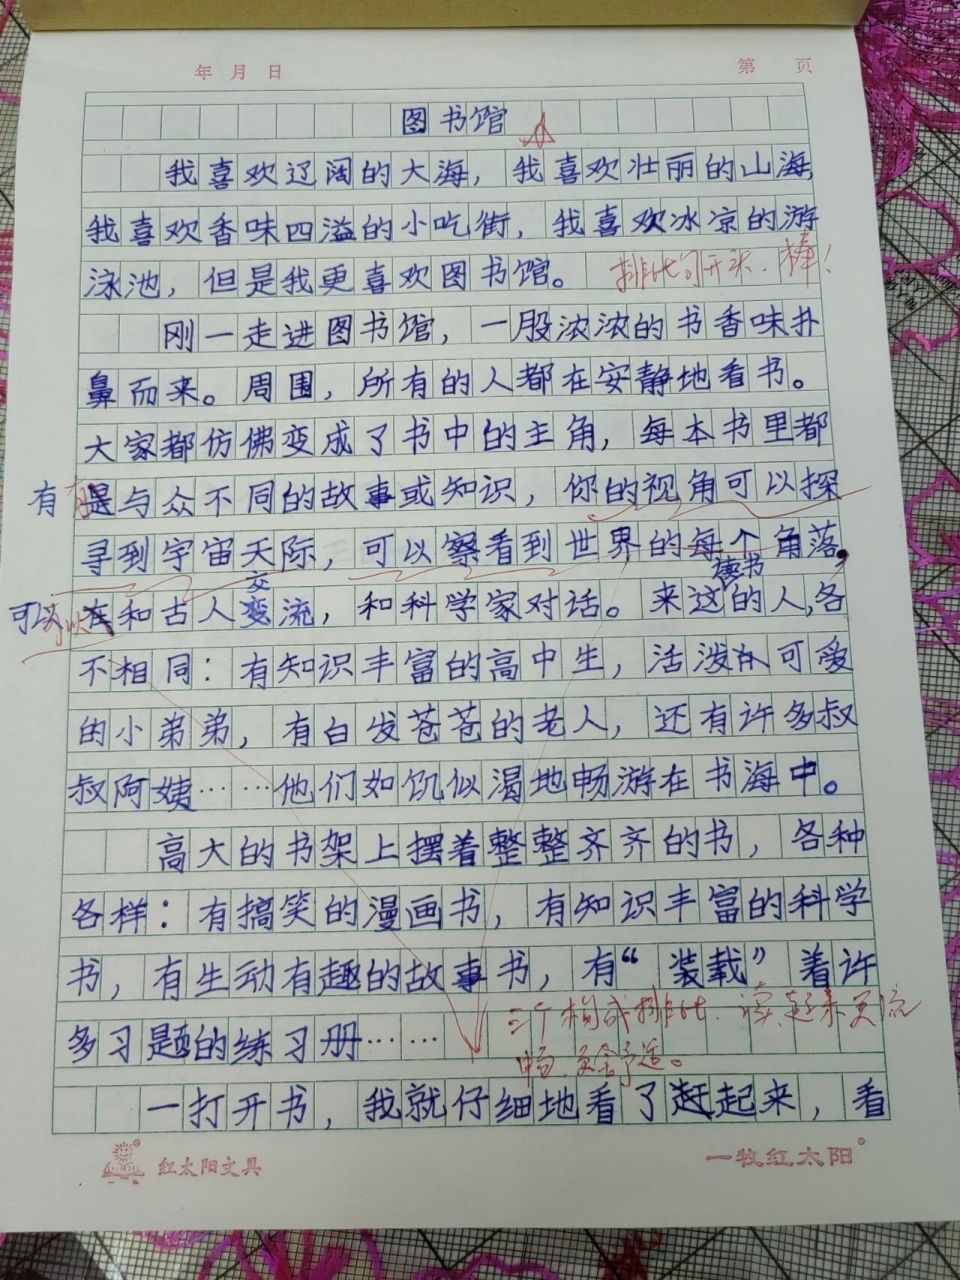 年 月 日 第 页
图书馆
我喜欢辽阔的大海，我喜欢壮丽的山海
我喜欢香味四溢的小吃街，我喜欢冰凉的游
泳池，但是我更喜欢图书馆。 排比句开头，棒！
刚一走进图书馆，一股浓浓的书香味扑
鼻而来。周围，所有的人都在安静地看书。
大家都仿佛变成了书中的主角，每本书里都
有 与众不同的故事或知识，你的视角可以探
寻到宇宙天际，可以察看到世界的每个角落，
可以 和古人交流，和科学家对话。来这读书的人，各
不相同：有知识丰富的高中生，活泼可爱
的小弟弟，有白发苍苍的老人，还有许多叔
叔阿姨……他们如饥似渴地畅游在书海中。
高大的书架上摆着整整齐齐的书，各种
各样：有搞笑的漫画书，有知识丰富的科学
书，有生动有趣的故事书，有“装载”着许
三个构成排比，读起来更流
多习题的练习册……
畅，更舒适。
一打开书，我就仔细地看了起来，看
红太阳文具 一牧红太阳